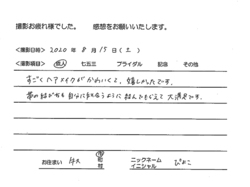 撮影お疲れ様でした。 感想をお願いいたします。
<撮影日時> 2020年 8月 15日(土)
<撮影項目> 成人 七五三 ブライダル 記念 その他
すごくヘアメイクがかわいくて、嬉しかったです。
自分に似合うように 選んでもらえて 大満足です。
お住まい 市 町 村 ニックネーム イニシャル ぴよこ